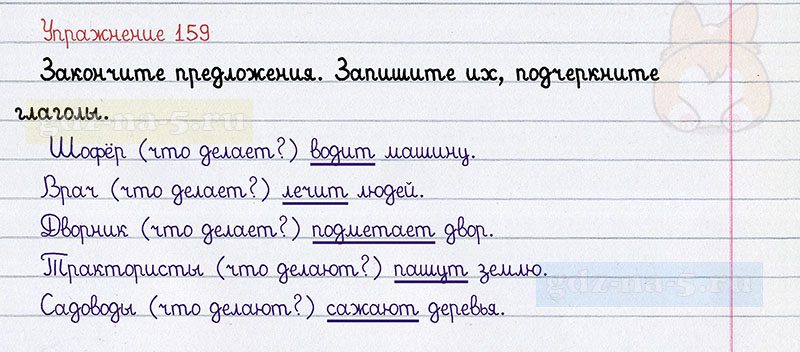 Упражнение 159
Закончите предложения. Запишите их, подчеркните
глаголы.
gdz-na-5.ru
Шофёр (что делает?) водит машину.
Врач (что делает?) лечит людей.
Дворник (что делает?) подметает двор.
Трактористы (что делают?) пашут землю.
gdz-na-5.ru
Садоводы (что делают?) сажают деревья.